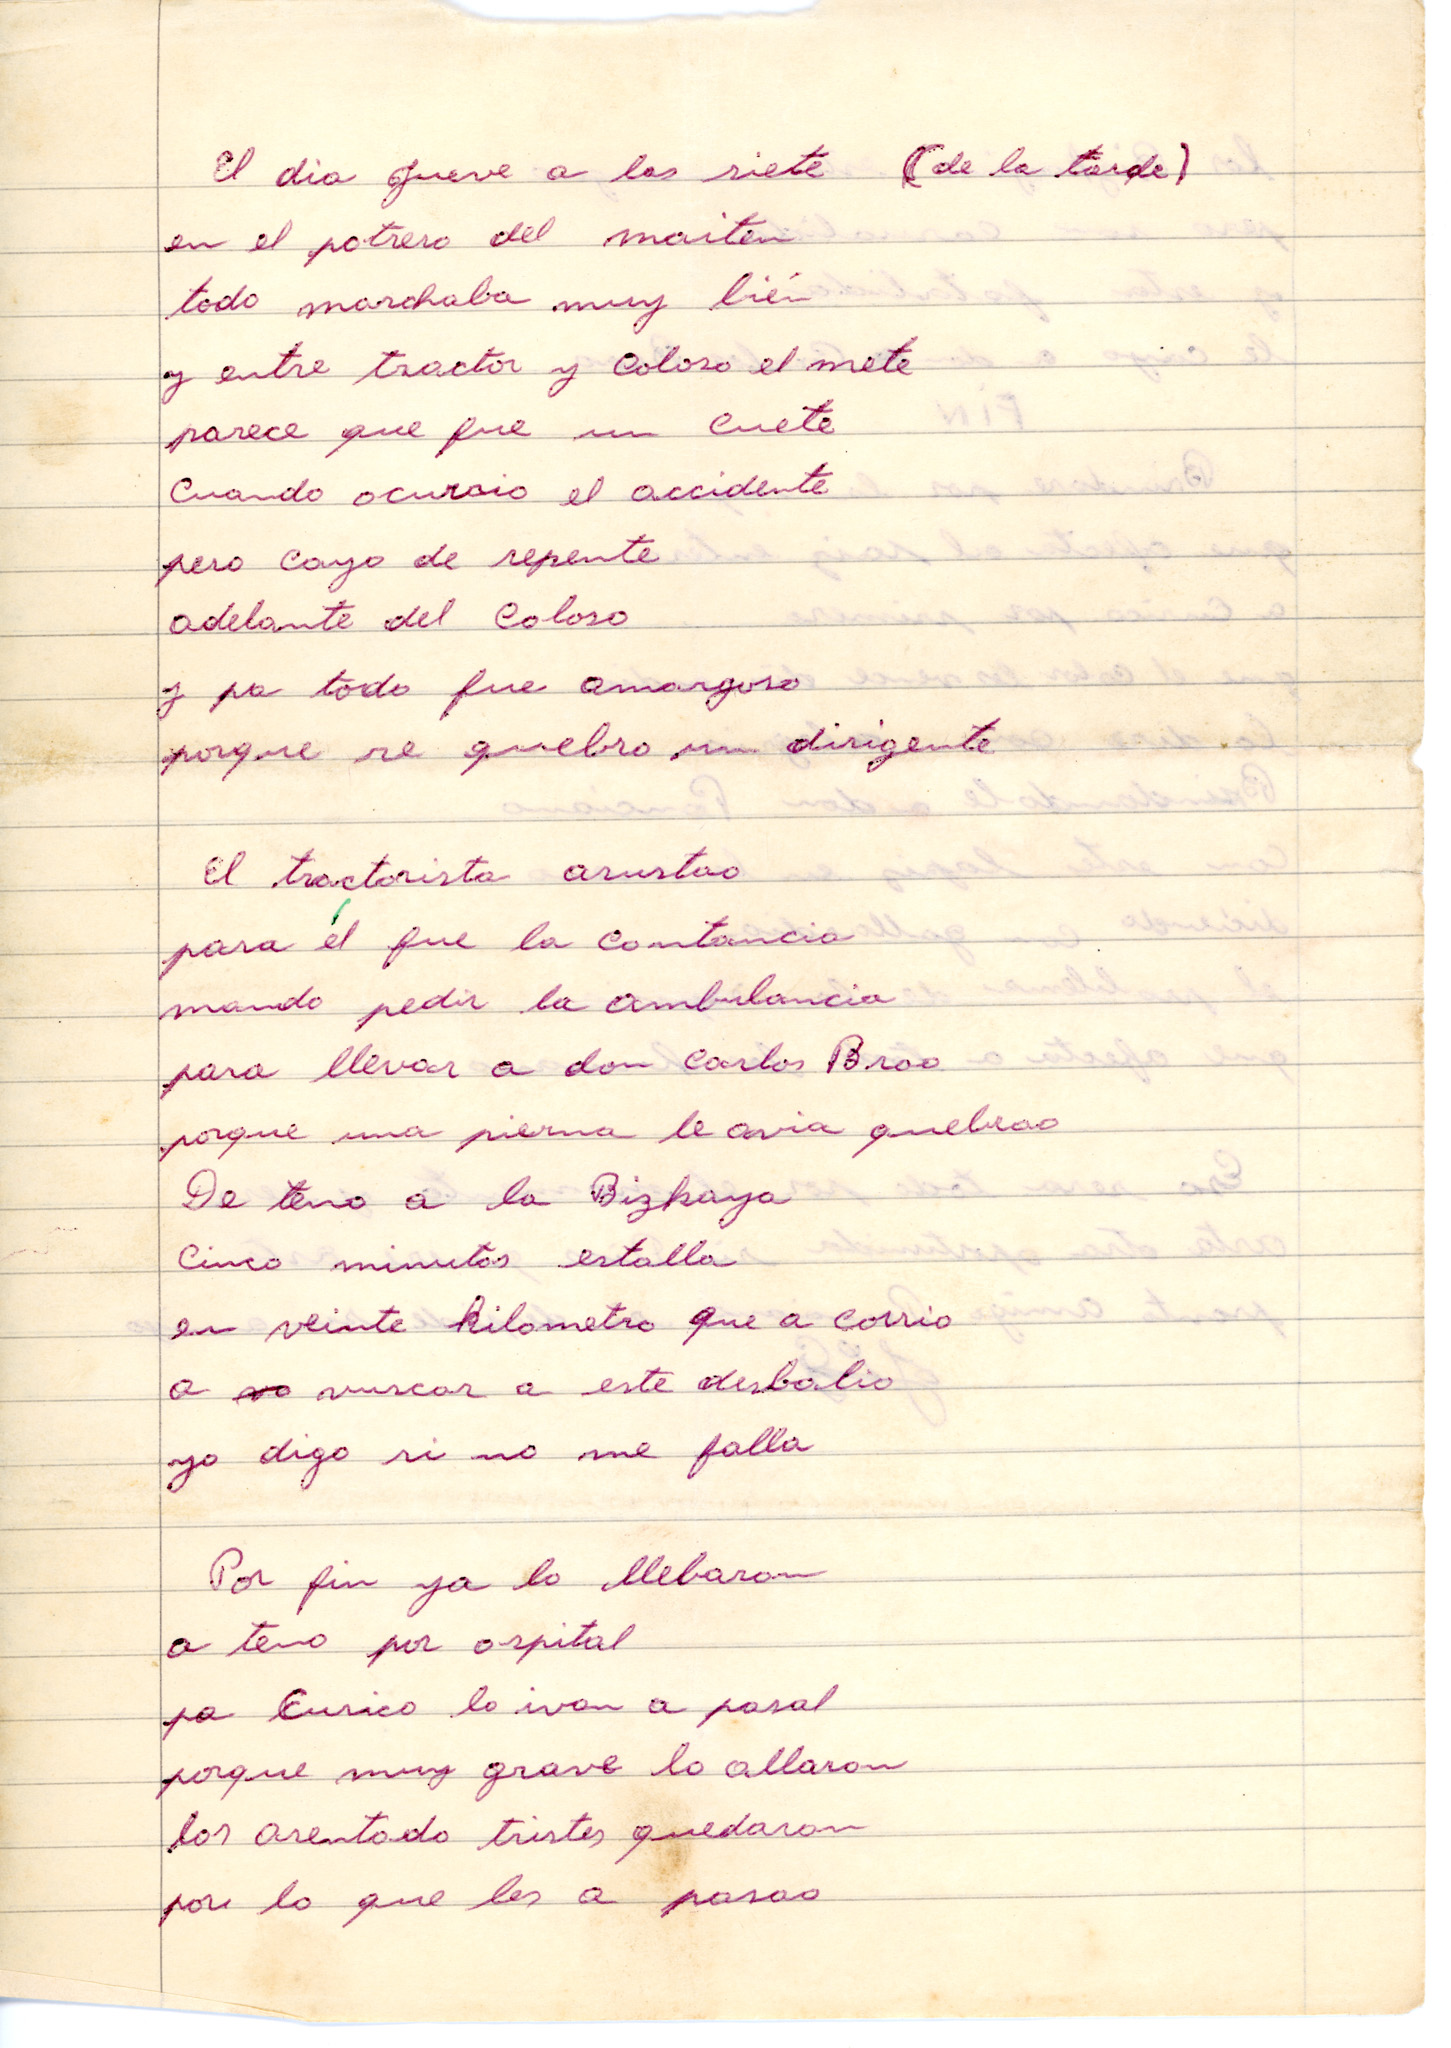 El dia Jueve a las siete (de la tarde)
en el potrero del maiten
todo marchaba muy bién
y entre tractor y Coloso el mete
parece que fue un Cuete
Cuando ocurrio el accidente
pero Cayo de repente
adelante del Coloso
y pa todo fue amargoso
porque se quebro un dirigente
El tractorista asustao
para él fue la Contancia
mando pedir la ambulancia
para llevar a don Carlos Brao
porque una pierna le avia quebrao
De teno a la Bizkaya
Cinco minutos estalla
en veinte kilometro que a corrio
a vuscar a este desbalio
yo digo si no me falla
Por fin ya lo llebaron
a teno por ospital
pa Curico lo ivan a pasal
porque muy grave lo allaron
los asentado tristes quedaron
por lo que les a pasao